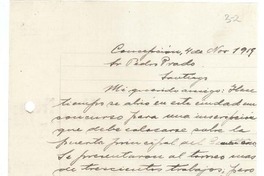 32
Concepción, 4 de Nov 1919
Sr Pedro Prado
Santiago
Mi querido amigo: Hace
tiempo se abrió en esta ciudad un
concurso para una inscripción
que debe colocarse sobre la
puerta principal del
Se presentaron al torneo mas
de trescientos trabajos, pero